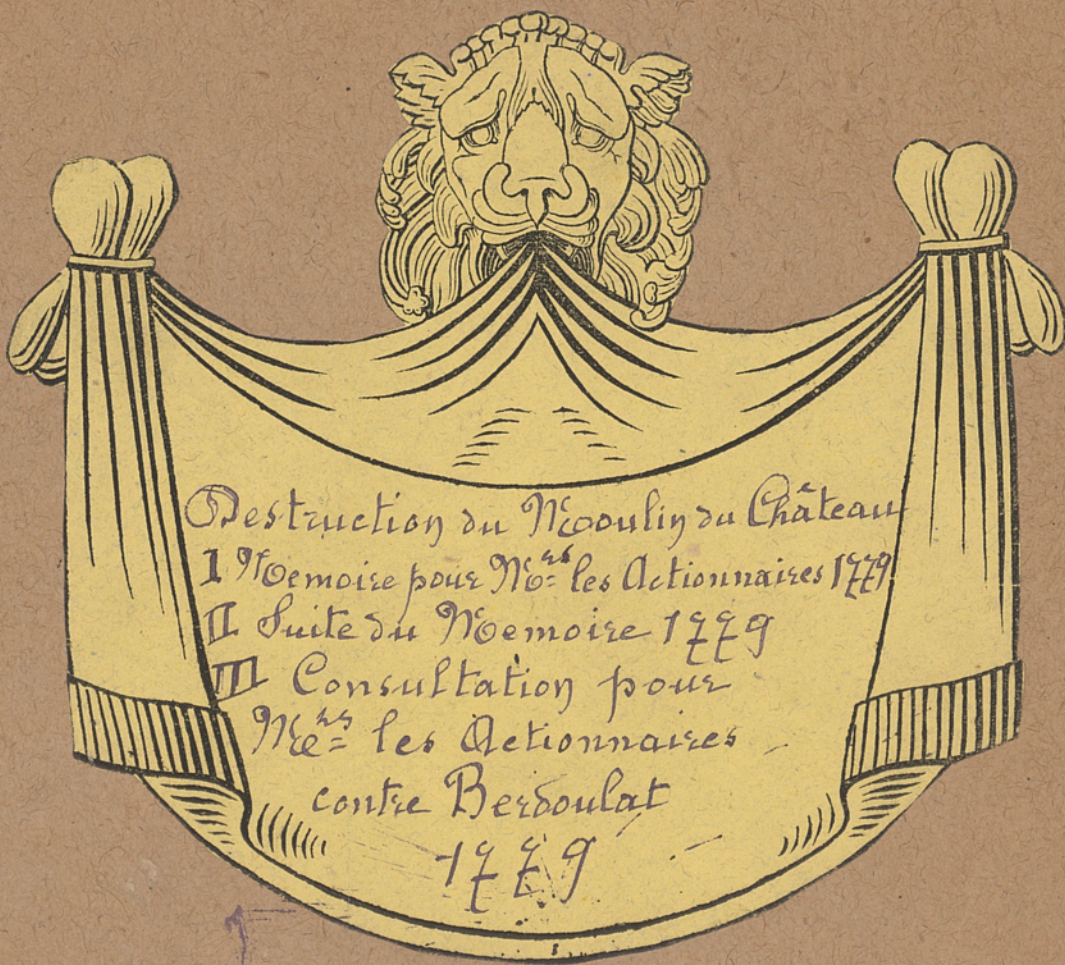 Destruction du Moulin du Château
I Memoire pour Mrs les Actionnaires 1779
II Suite du Memoire 1779
III Consultation pour
Mrs les Actionnaires
contre Berdoulat
1779